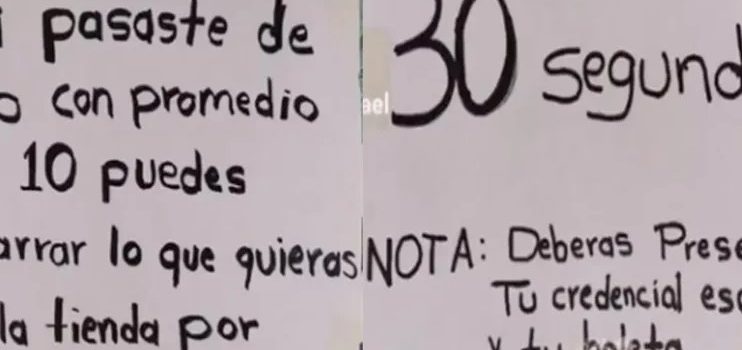 pasaste de
con promedio
10 puedes
arrar lo que quieras
la tienda por
ael
30 segund
NOTA: Deberas Prese
Tu credencial esc
y tu boleta